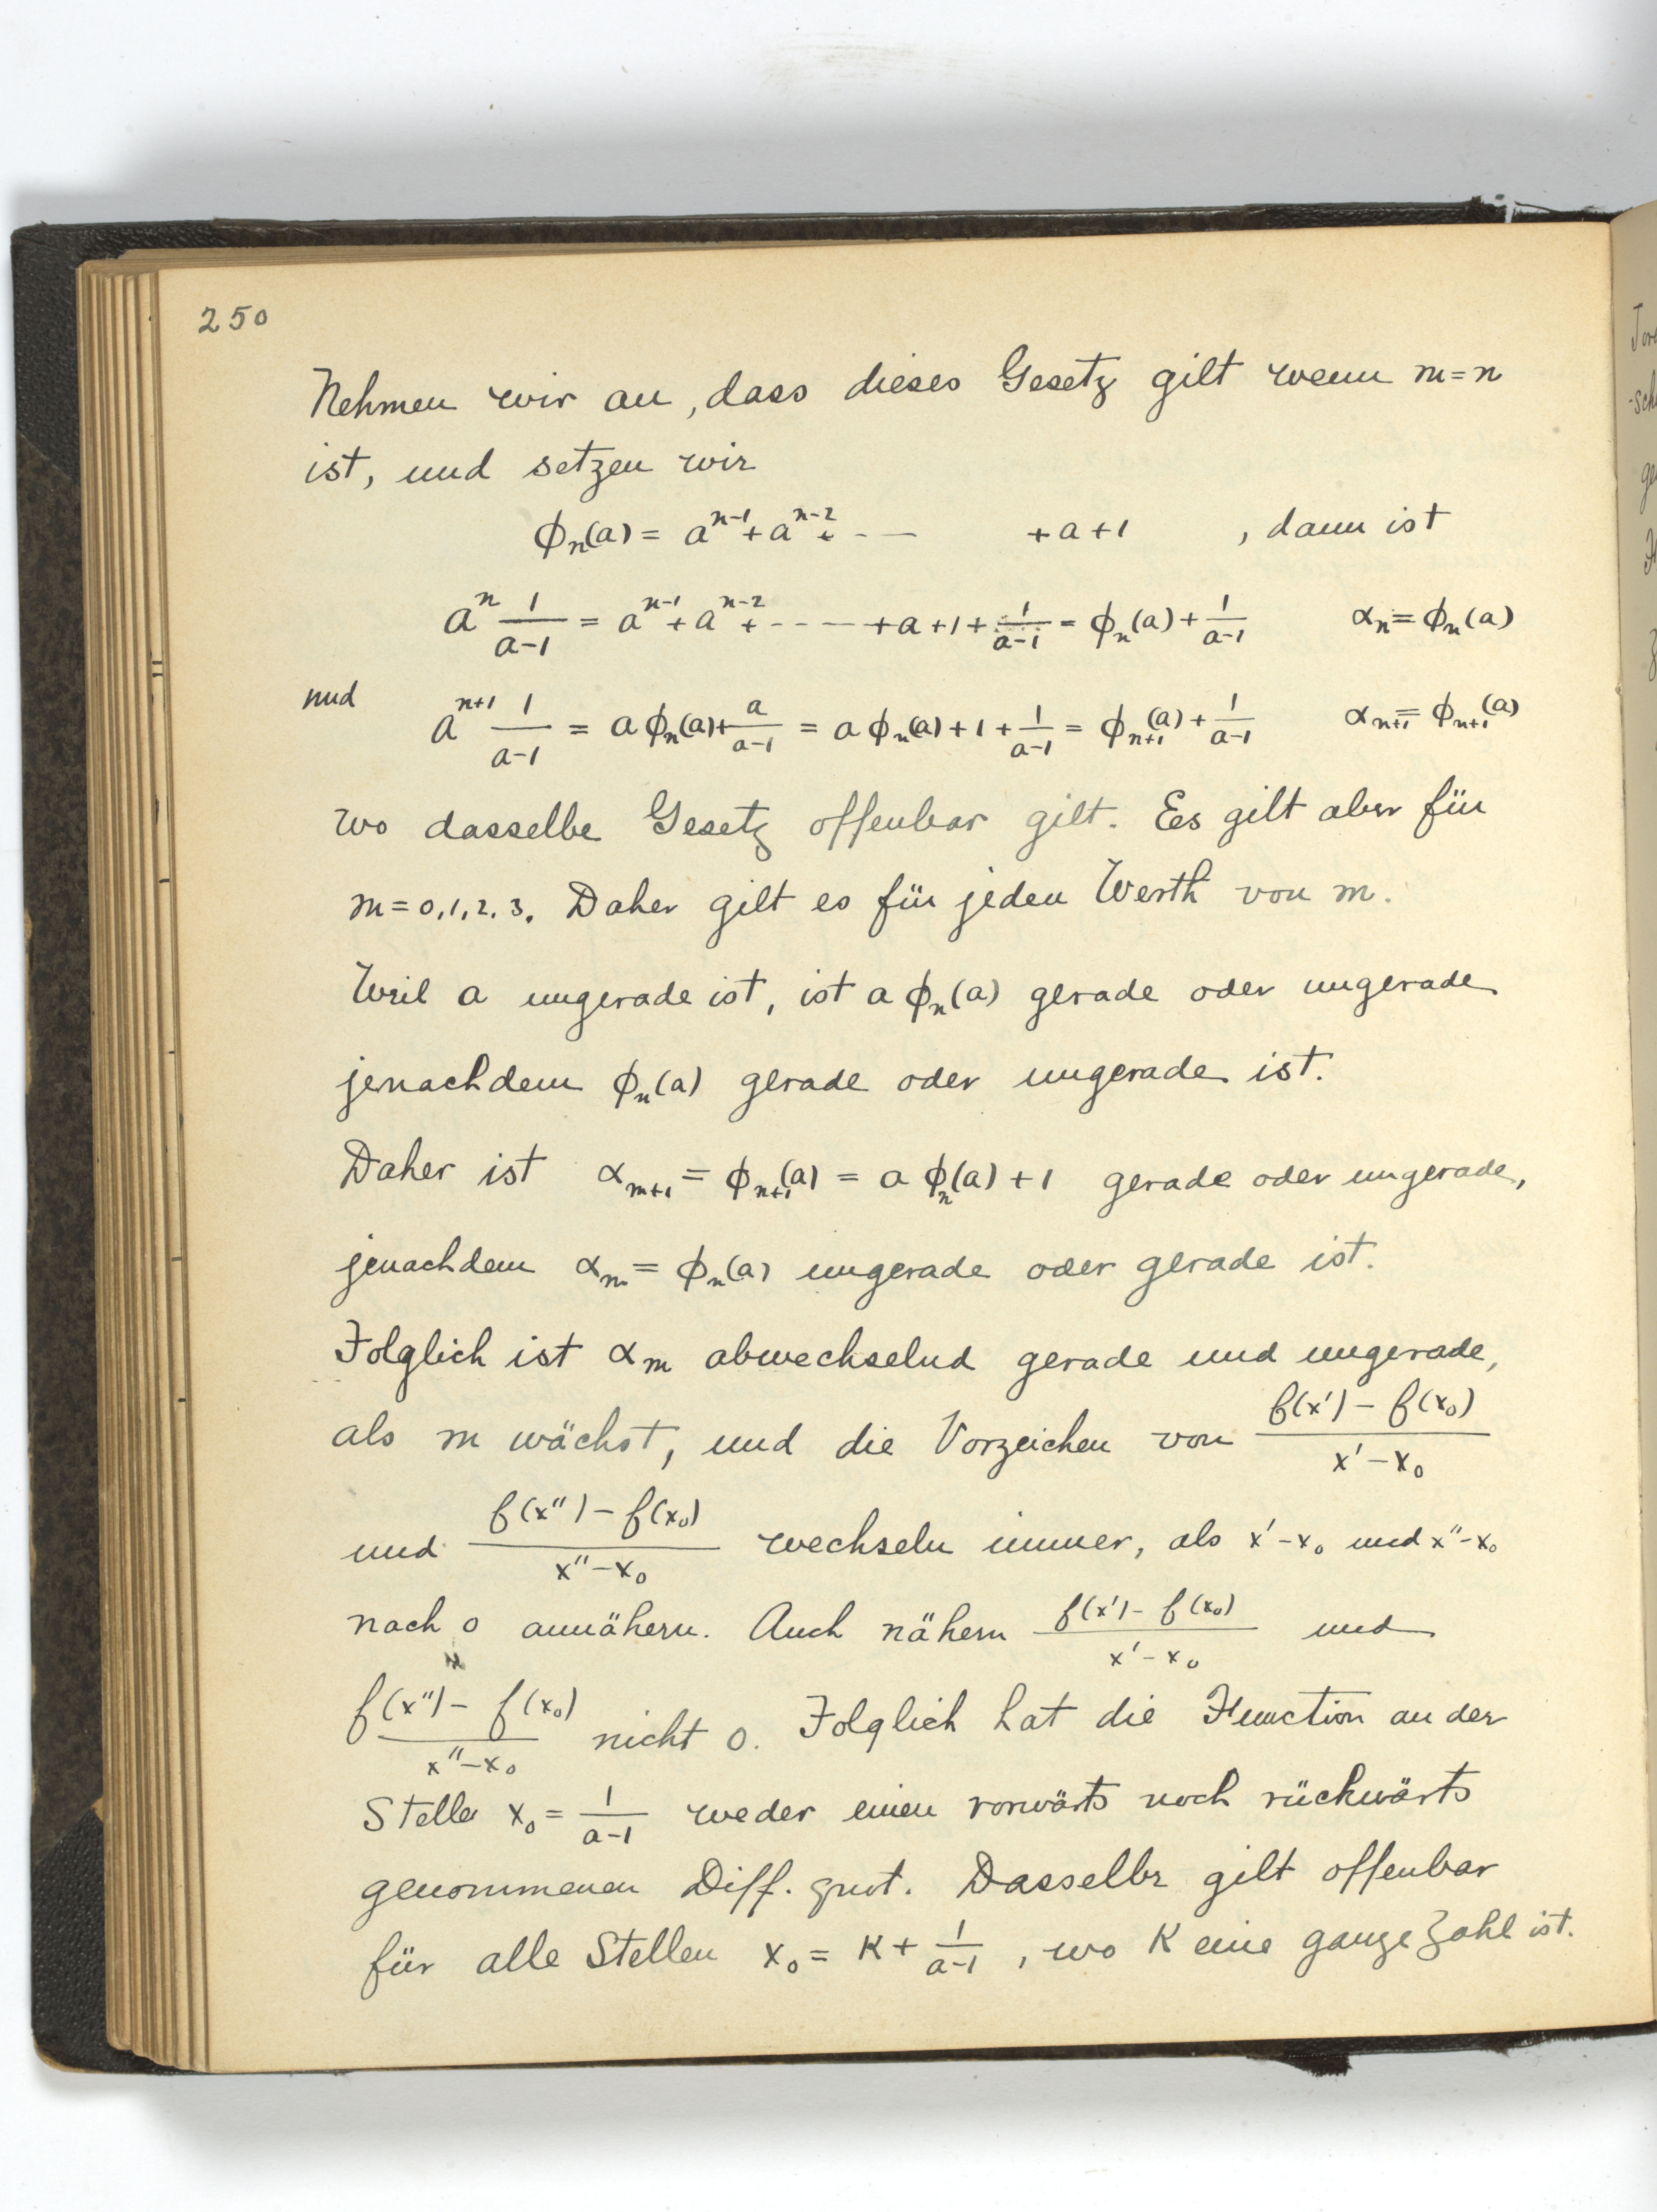 250
Nehmen wir an, dass dieses Gesetz gilt wenn m=n
ist, und setzen wir
ϕₙ(a) = aⁿ⁻¹ + aⁿ⁻² + - — + a + 1 , dann ist
aⁿ 1/(a-1) = aⁿ⁻¹ + aⁿ⁻² + - - - — + a + 1 + 1/(a-1) = ϕₙ(a) + 1/(a-1) αₙ = ϕₙ(a)
und aⁿ⁺¹ 1/(a-1) = a ϕₙ(a) + a/(a-1) = a ϕₙ(a) + 1 + 1/(a-1) = ϕₙ₊₁(a) + 1/(a-1) αₙ₊₁ = ϕₙ₊₁(a)
wo dasselbe Gesetz offenbar gilt. Es gilt aber für
m = 0, 1, 2, 3. Daher gilt es für jeden Werth von m.
Weil a ungerade ist, ist a ϕₙ(a) gerade oder ungerade
jenachdem ϕₙ(a) gerade oder ungerade ist.
Daher ist αₘ₊₁ = ϕₙ₊₁(a) = a ϕₙ(a) + 1 gerade oder ungerade,
jenachdem αₘ = ϕₙ(a) ungerade oder gerade ist.
Folglich ist αₘ abwechselnd gerade und ungerade,
als m wächst, und die Vorzeichen von (f(x′) - f(x₀))/(x′ - x₀)
und (f(x″) - f(x₀))/(x″ - x₀) wechseln immer, als x′ - x₀ und x″ - x₀
nach 0 annähern. Auch nähern (f(x′) - f(x₀))/(x′ - x₀) und
(f(x″) - f(x₀))/(x″ - x₀) nicht 0. Folglich hat die Function an der
Stelle x₀ = 1/(a-1) weder einen vorwärts noch rückwärts
genommenen Diff. quot. Dasselbe gilt offenbar
für alle Stellen x₀ = K + 1/(a-1), wo K eine ganze Zahl ist.